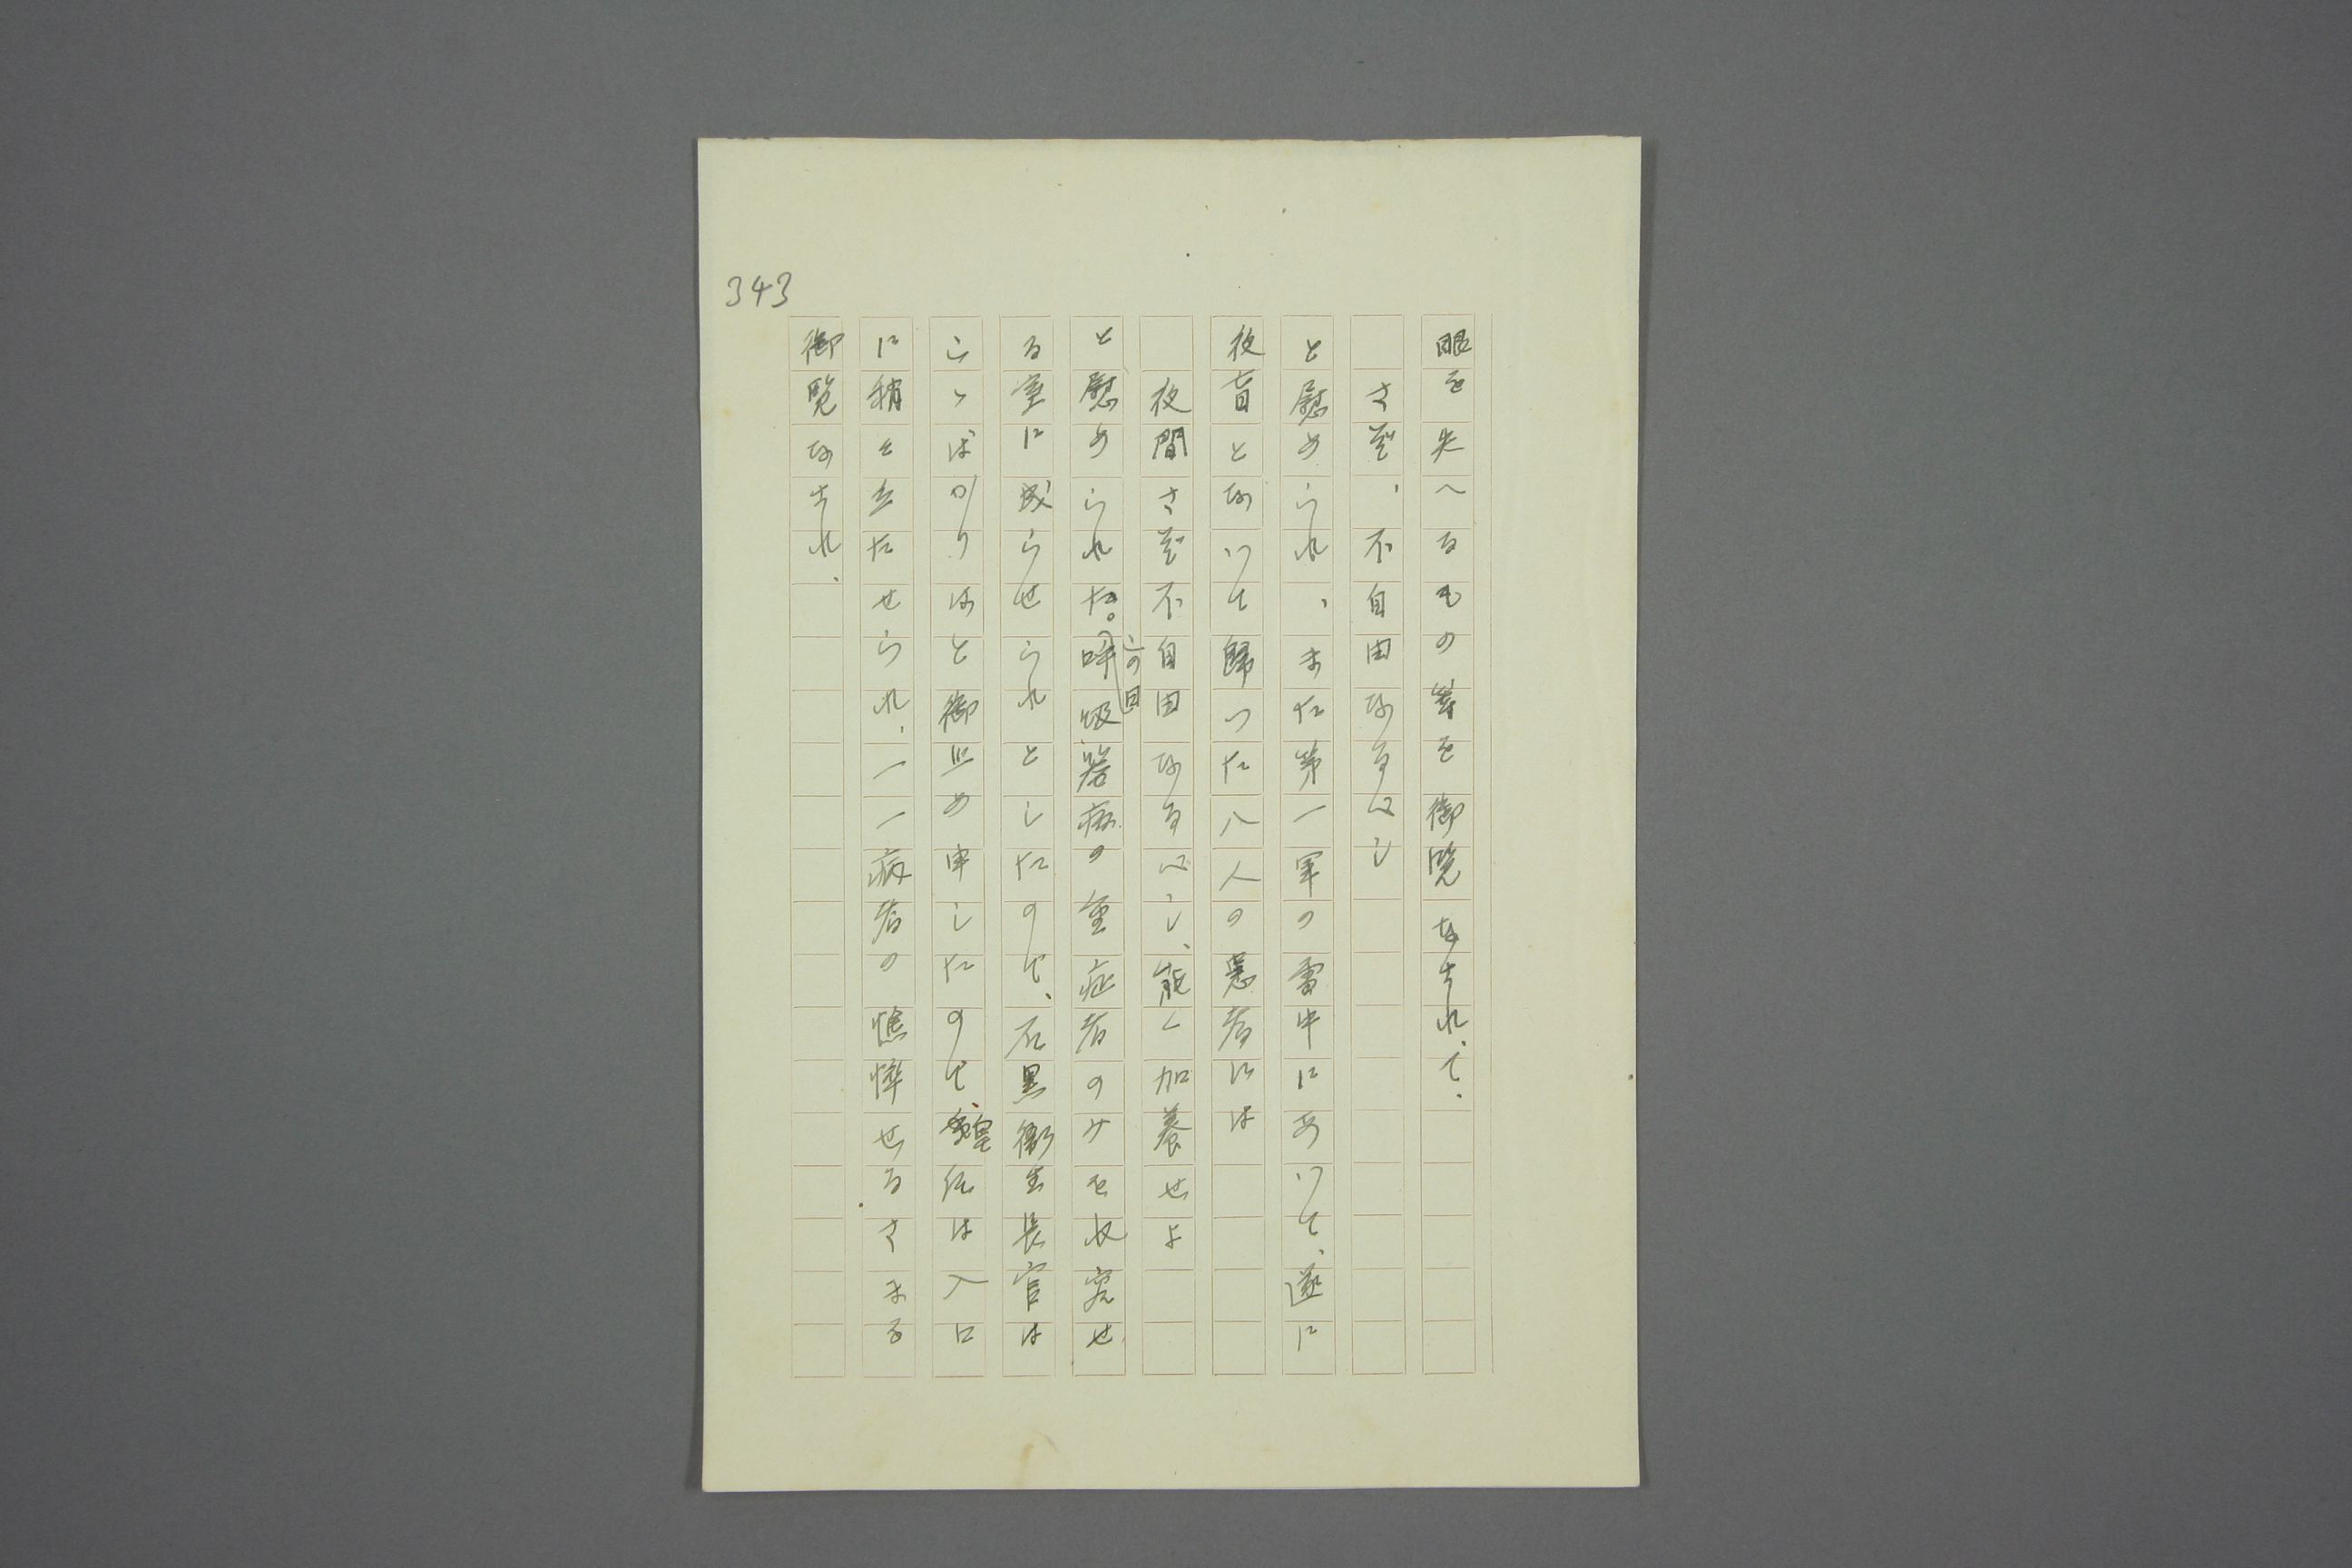 343
眼を失へるもの等を御覧なされて、
さぞ、不自由なるべし
と慰められ、また第一軍の雪中にあつて、遂に
夜盲となつて歸つた八人の患者には
夜間さぞ不自由なるべし、能く加養せよ
と慰められた。この回呼吸器病の重症者のみを收容せ
る室に成らせられとしたので、石黒衞生長官は
こゝばかりはと御止め申したので、皇后は入口
に稍々立たせられ、一一病者の憔悴せるさまを
御覧なされ、